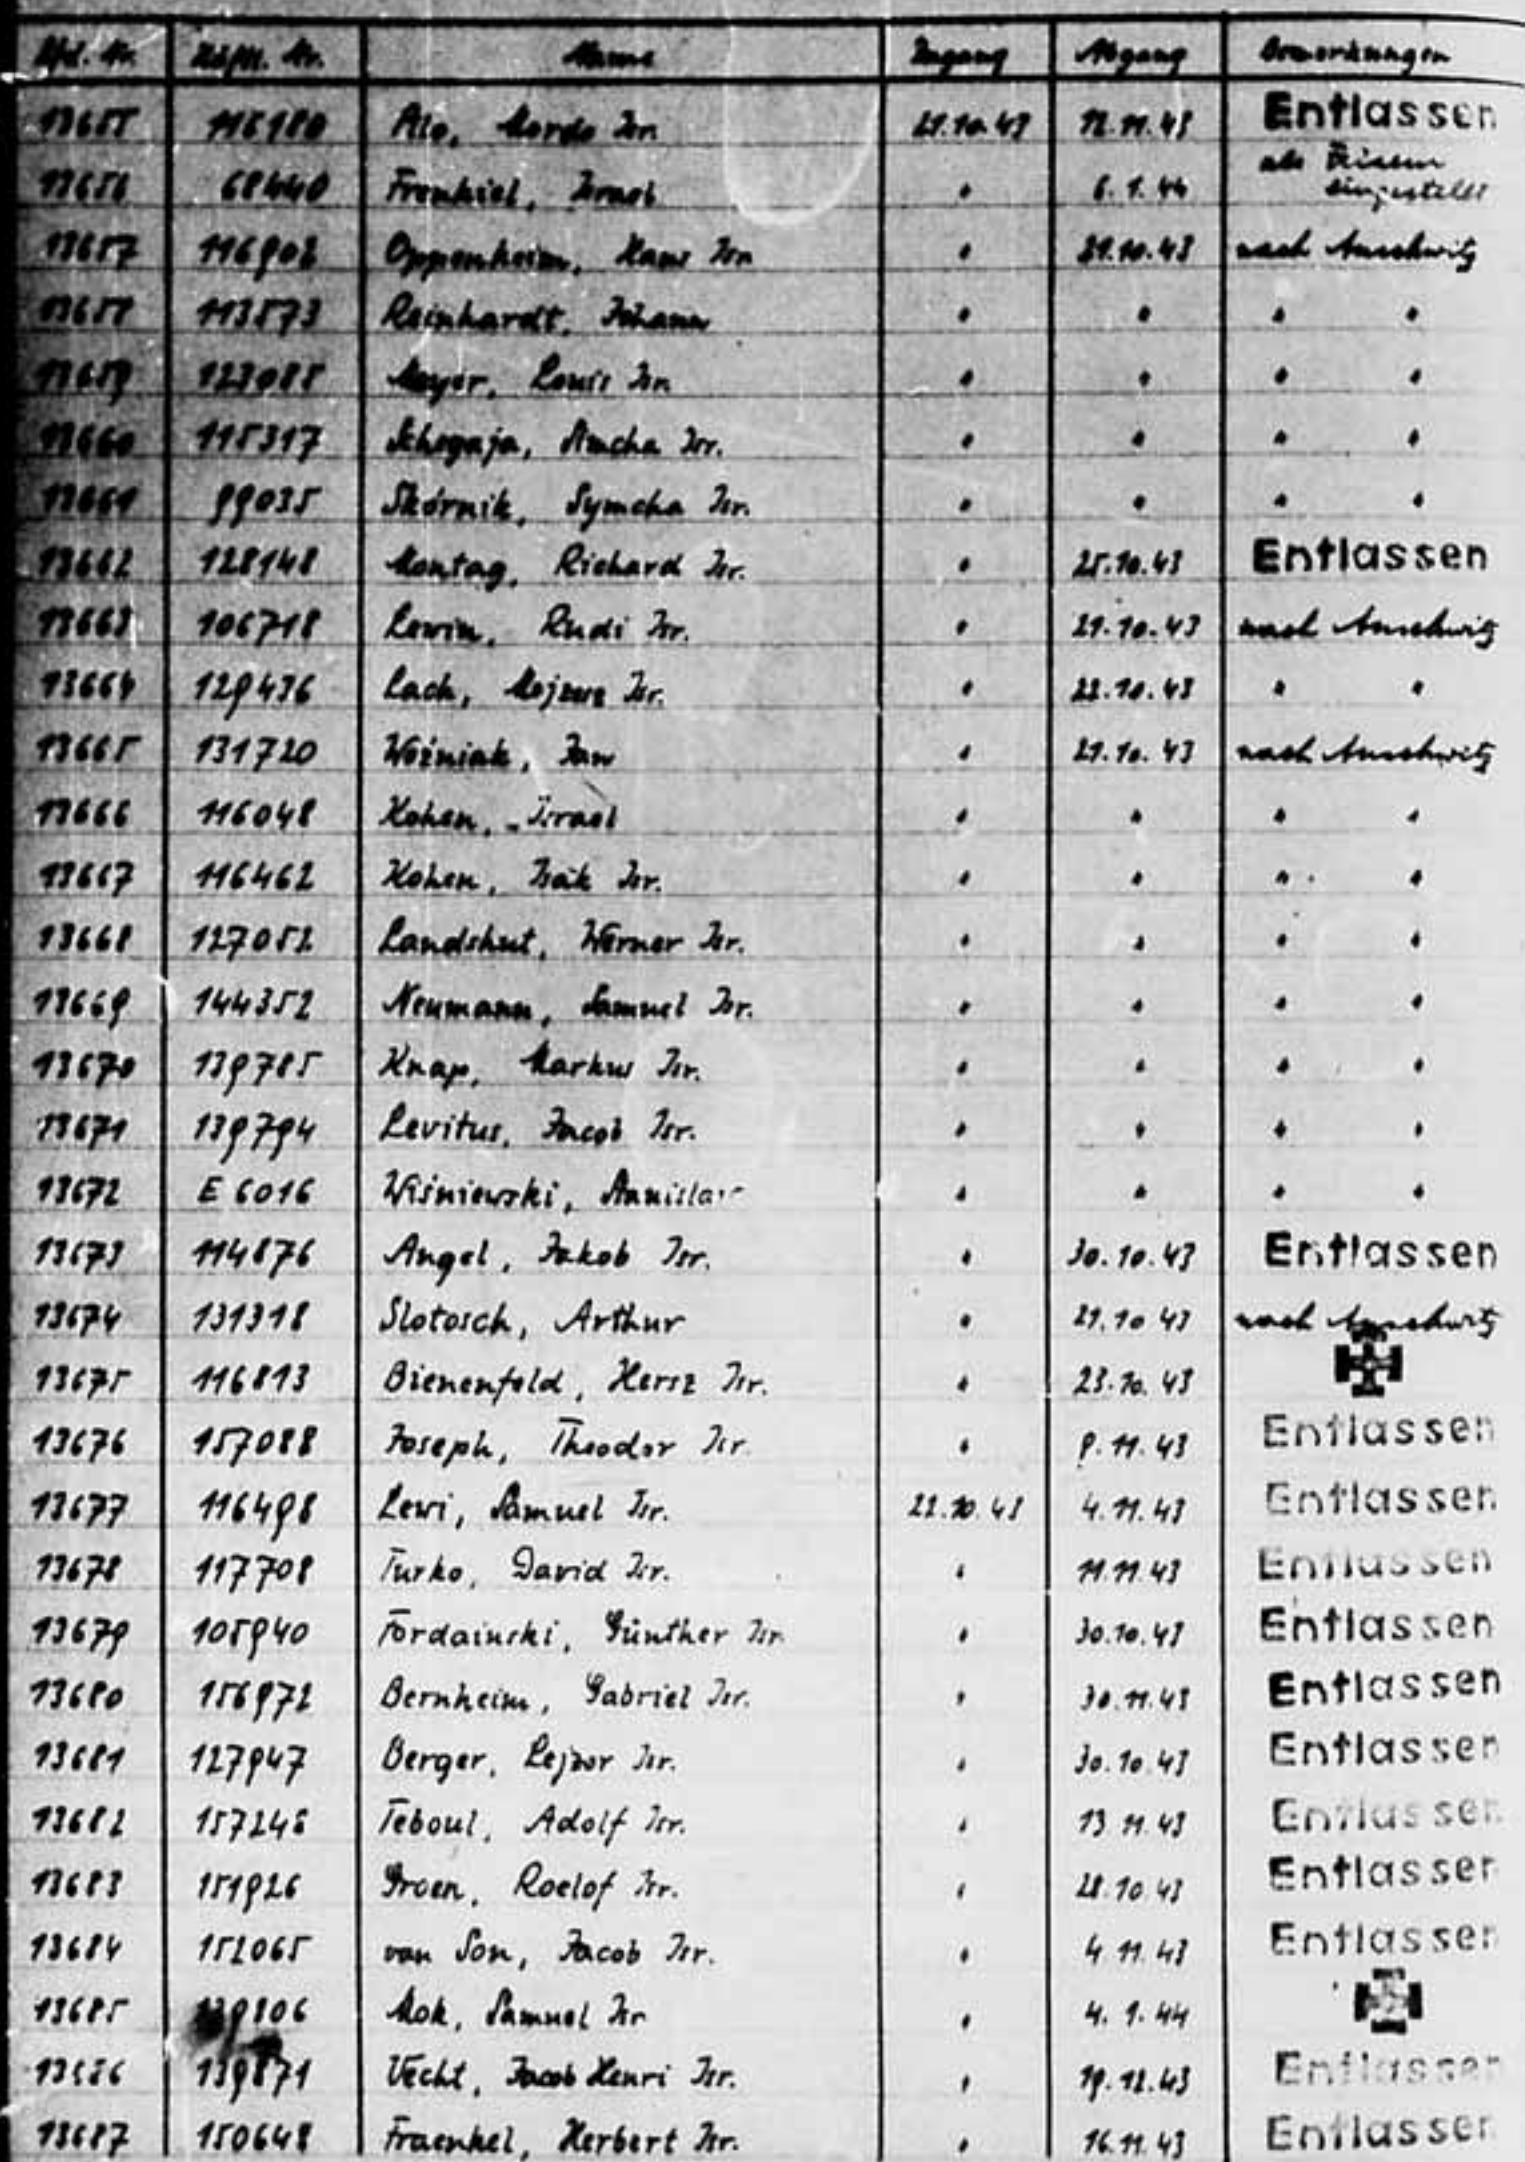 Lfd. Nr. Häftl. Nr. Name Zugang Abgang Bemerkungen
13655 115180 Alo, Mordo Isr. 21.10.43 12.11.43 Entlassen
13656 68440 Frenkiel, Israel " 6.1.44 als
eingestellt
13657 116902 Oppenheim, Hans Isr. " 21.10.43 nach Auschwitz
13658 113573 Reinhardt, Johann " " " "
13659 123088 Meyer, Louis Isr. " " " "
13660 115317 Amcha Isr. " " " "
13661 99035 Skórnik, Symcha Isr. " " " "
13662 128148 Montag, Richard Isr. " 25.10.43 Entlassen
13663 106718 Lewin, Rudi Isr. " 21.10.43 nach Auschwitz
13664 129436 Lach, Isr. " 22.10.43 " "
13665 131720 Woźniak, Jan " 21.10.43 nach Auschwitz
13666 116048 Kohen, Israel " " " "
13667 116462 Kohen, Isak Isr. " " " "
13668 127052 Landshut, Werner Isr. " " " "
13669 144352 Neumann, Samuel Isr. " " " "
13670 139785 Knap, Markus Isr. " " " "
13671 139794 Levitus, Jacob Isr. " " " "
13672 E 6016 Wiśniewski, " " " "
13673 114876 Angel, Jakob Isr. " 30.10.43 Entlassen
13674 131318 Slotosch, Arthur " 21.10.43 nach Auschwitz
13675 116813 Bienenfeld, Hersz Isr. " 23.10.43
13676 157088 Joseph, Theodor Isr. " 9.11.43 Entlassen
13677 116498 Lewi, Samuel Isr. 22.10.43 4.11.43 Entlassen
13678 117708 Turko, David Isr. " 11.11.43 Entlassen
13679 105940 Fordainski, Günther Isr. " 30.10.43 Entlassen
13680 156972 Bernheim, Gabriel Isr. " 30.11.43 Entlassen
13681 127947 Berger, Lejzor Isr. " 30.10.43 Entlassen
13682 157248 Teboul, Adolf Isr. " 13.11.43 Entlassen
13683 151926 Groen, Roelof Isr. " 28.10.43 Entlassen
13684 152065 van Son, Jacob Isr. " 4.11.43 Entlassen
13685 Mok, Samuel Isr. " 4.1.44
13686 139871 Vecht, Jacob Henri Isr. " 19.12.43 Entlassen
13687 150648 Fraenkel, Herbert Isr. " 16.11.43 Entlassen